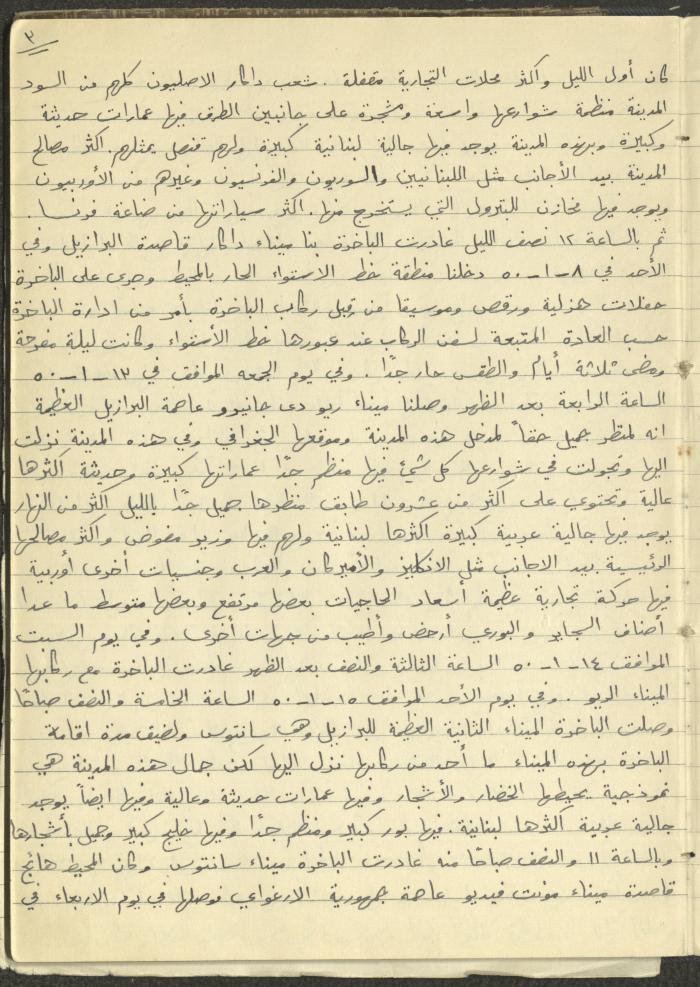 ٣
كان أول الليل وأكثر محلات التجارية مقفلة . شعب داكار الاصليون كلهم من السود
المدينة منظمة شوارعها واسعة ومشجرة على جانبين الطرق فيها عمارات حديثة
وكبيرة وبهذه المدينة يوجد فيها جالية لبنانية كبيرة ولهم قنصل يمثلهم . اكثر مصالح
المدينة بيد الأجانب مثل اللبنانيين والسوريون والفرنسيون وغيرهم من الأوربيون
ويوجد فيها مخازن للبترول التي يستخرج منها . اكثر سياراتها من صناعة فرنسا .
ثم بالساعة ١٢ نصف الليل غادرت الباخرة بنا ميناء داكار قاصدة البرازيل وفي
الأحد في ٨ – ١ – ٥٠ دخلنا منطقة خط الاستواء الحار بالمحيط وجرى على الباخرة
حفلات هزلية ورقص وموسيقا من قبل ركاب الباخرة بأمر من ادارة الباخرة
حسب العادة المتبعة لسفن الركاب عند عبورها خط الأستواء وكانت ليلة مفرحة
ومضى ثلاثة أيام والطقس حار جدًا . وفي يوم الجمعه الموافق في ١٣ – ١ – ٥٠
الساعة الرابعة بعد الظهر وصلنا ميناء ريو دى جانيرو عاصمة البرازيل العظيمة
انه لمنظر جميل حقاً لمدخل هذه المدينة وموقعها الجغرافي وفي هذه المدينة نزلت
اليها وتجولت في شوارعها كل شيئ فيها منظم جدًا عماراتها كبيرة وحديثة اكثرها
عالية وتحتوي على اكثر من عشرون طابق منظرها جميل جدًا بالليل اكثر من النهار
يوجد فيها جالية عربية كبيرة اكثرها لبنانية ولهم فيها وزير مفوض واكثر مصالحها
الرئيسية بيد الاجانب مثل الانكليز والأميركان والعرب وجنسيات أخرى أوربية
فيها حركة تجارية عظيمة اسعار الحاجيات بعضها مرتفع وبعضها متوسط ما عدا
أصناف السجاير والبوري أرخص وأطيب من جهات أخرى . وفي يوم السبت
الموافق ١٤ – ١ – ٥٠ الساعة الثالثة والنصف بعد الظهر غادرت الباخرة مع ركابها
الميناء الريو . وفي يوم الأحد الموافق ١٥ – ١ – ٥٠ الساعة الخامسة والنصف صباحًا
وصلت الباخرة الميناء الثانية العظيمة للبرازيل وهي سانتوس ولضيق مدة اقامة
الباخرة بهذه الميناء ما أحد من ركابها نزل اليها لكن جمال هذه المدينة هي
نموذجية يحيطها الخضار والأشجار وفيها عمارات حديثة وعالية وفيها ايضاً يوجد
جالية عربية اكثرها لبنانية . فيها بور كبير ومنظم جدًا وفيها خليج كبير وجميل بأشجارها
وبالساعة ١١ والنصف صباحًا منه غادرت الباخرة ميناء سانتوس وكان المحيط هائج
قاصدة ميناء مونت فيديو عاصمة جمهورية الارغواي فوصلها في يوم الاربعاء في